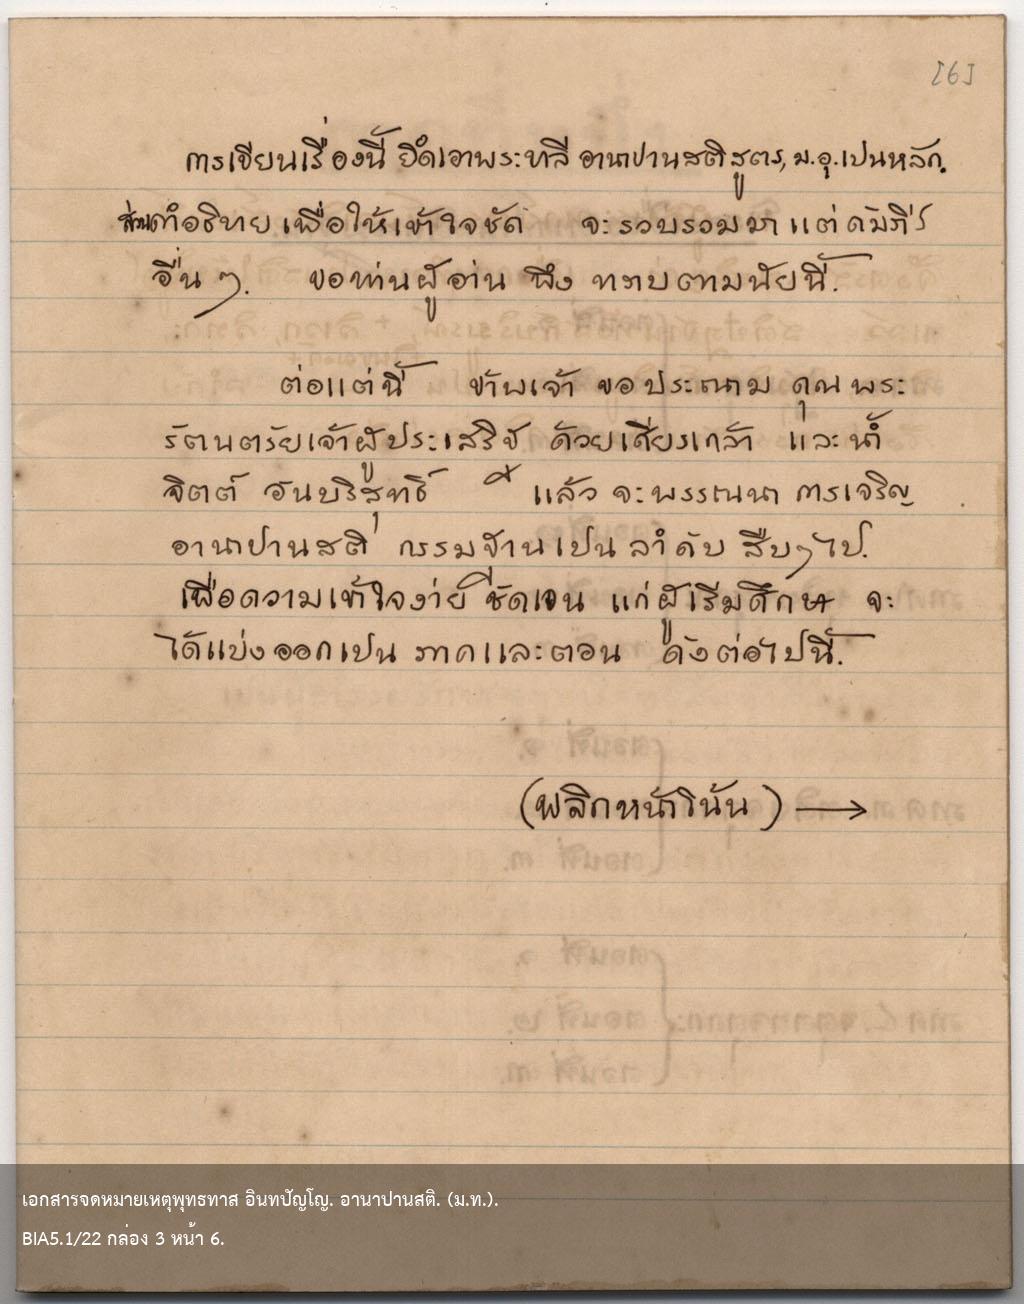 [6]
การเขียนเรื่องนี้ ยึดเอาพระบาลี อานาปานสติสูตร, ม.อุ. เปนหลัก.
ส่วนคำอธิบาย เพื่อให้เข้าใจชัด จะรวบรวมมาแต่คัมภีร์
อื่น ๆ. ขอท่านผู้อ่าน พึง ทราบตามนัยนี้.
ต่อแต่นี้ ข้าพเจ้า ขอประณาม คุณพระ
รัตนตรัยเจ้าผู้ประเสริฐ ด้วยเศียรเกล้า และน้ำ
จิตต์ อันบริสุทธิ์ แล้ว จะพรรณนา การเจริญ
อานาปานสติ กรรมฐานเปนลำดับ สืบๆไป.
เพื่อความเข้าใจง่าย ชัดเจน แก่ผู้เริ่มศึกษา จะ
ได้แบ่งออกเปน ภาคและตอน ดังต่อไปนี้.
(พลิกหน้าโน้น) →
เอกสารจดหมายเหตุพุทธทาส อินทปัญโญ. อานาปานสติ. (ม.ท.).
BIA5.1/22 กล่อง 3 หน้า 6.